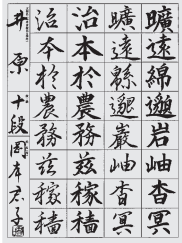 曠遠綿邈岩岫杳冥
曠遠緜邈巖岫杳冥
治本於農務兹稼穡
治本於農務兹稼穡
井原 十段 岡本君子